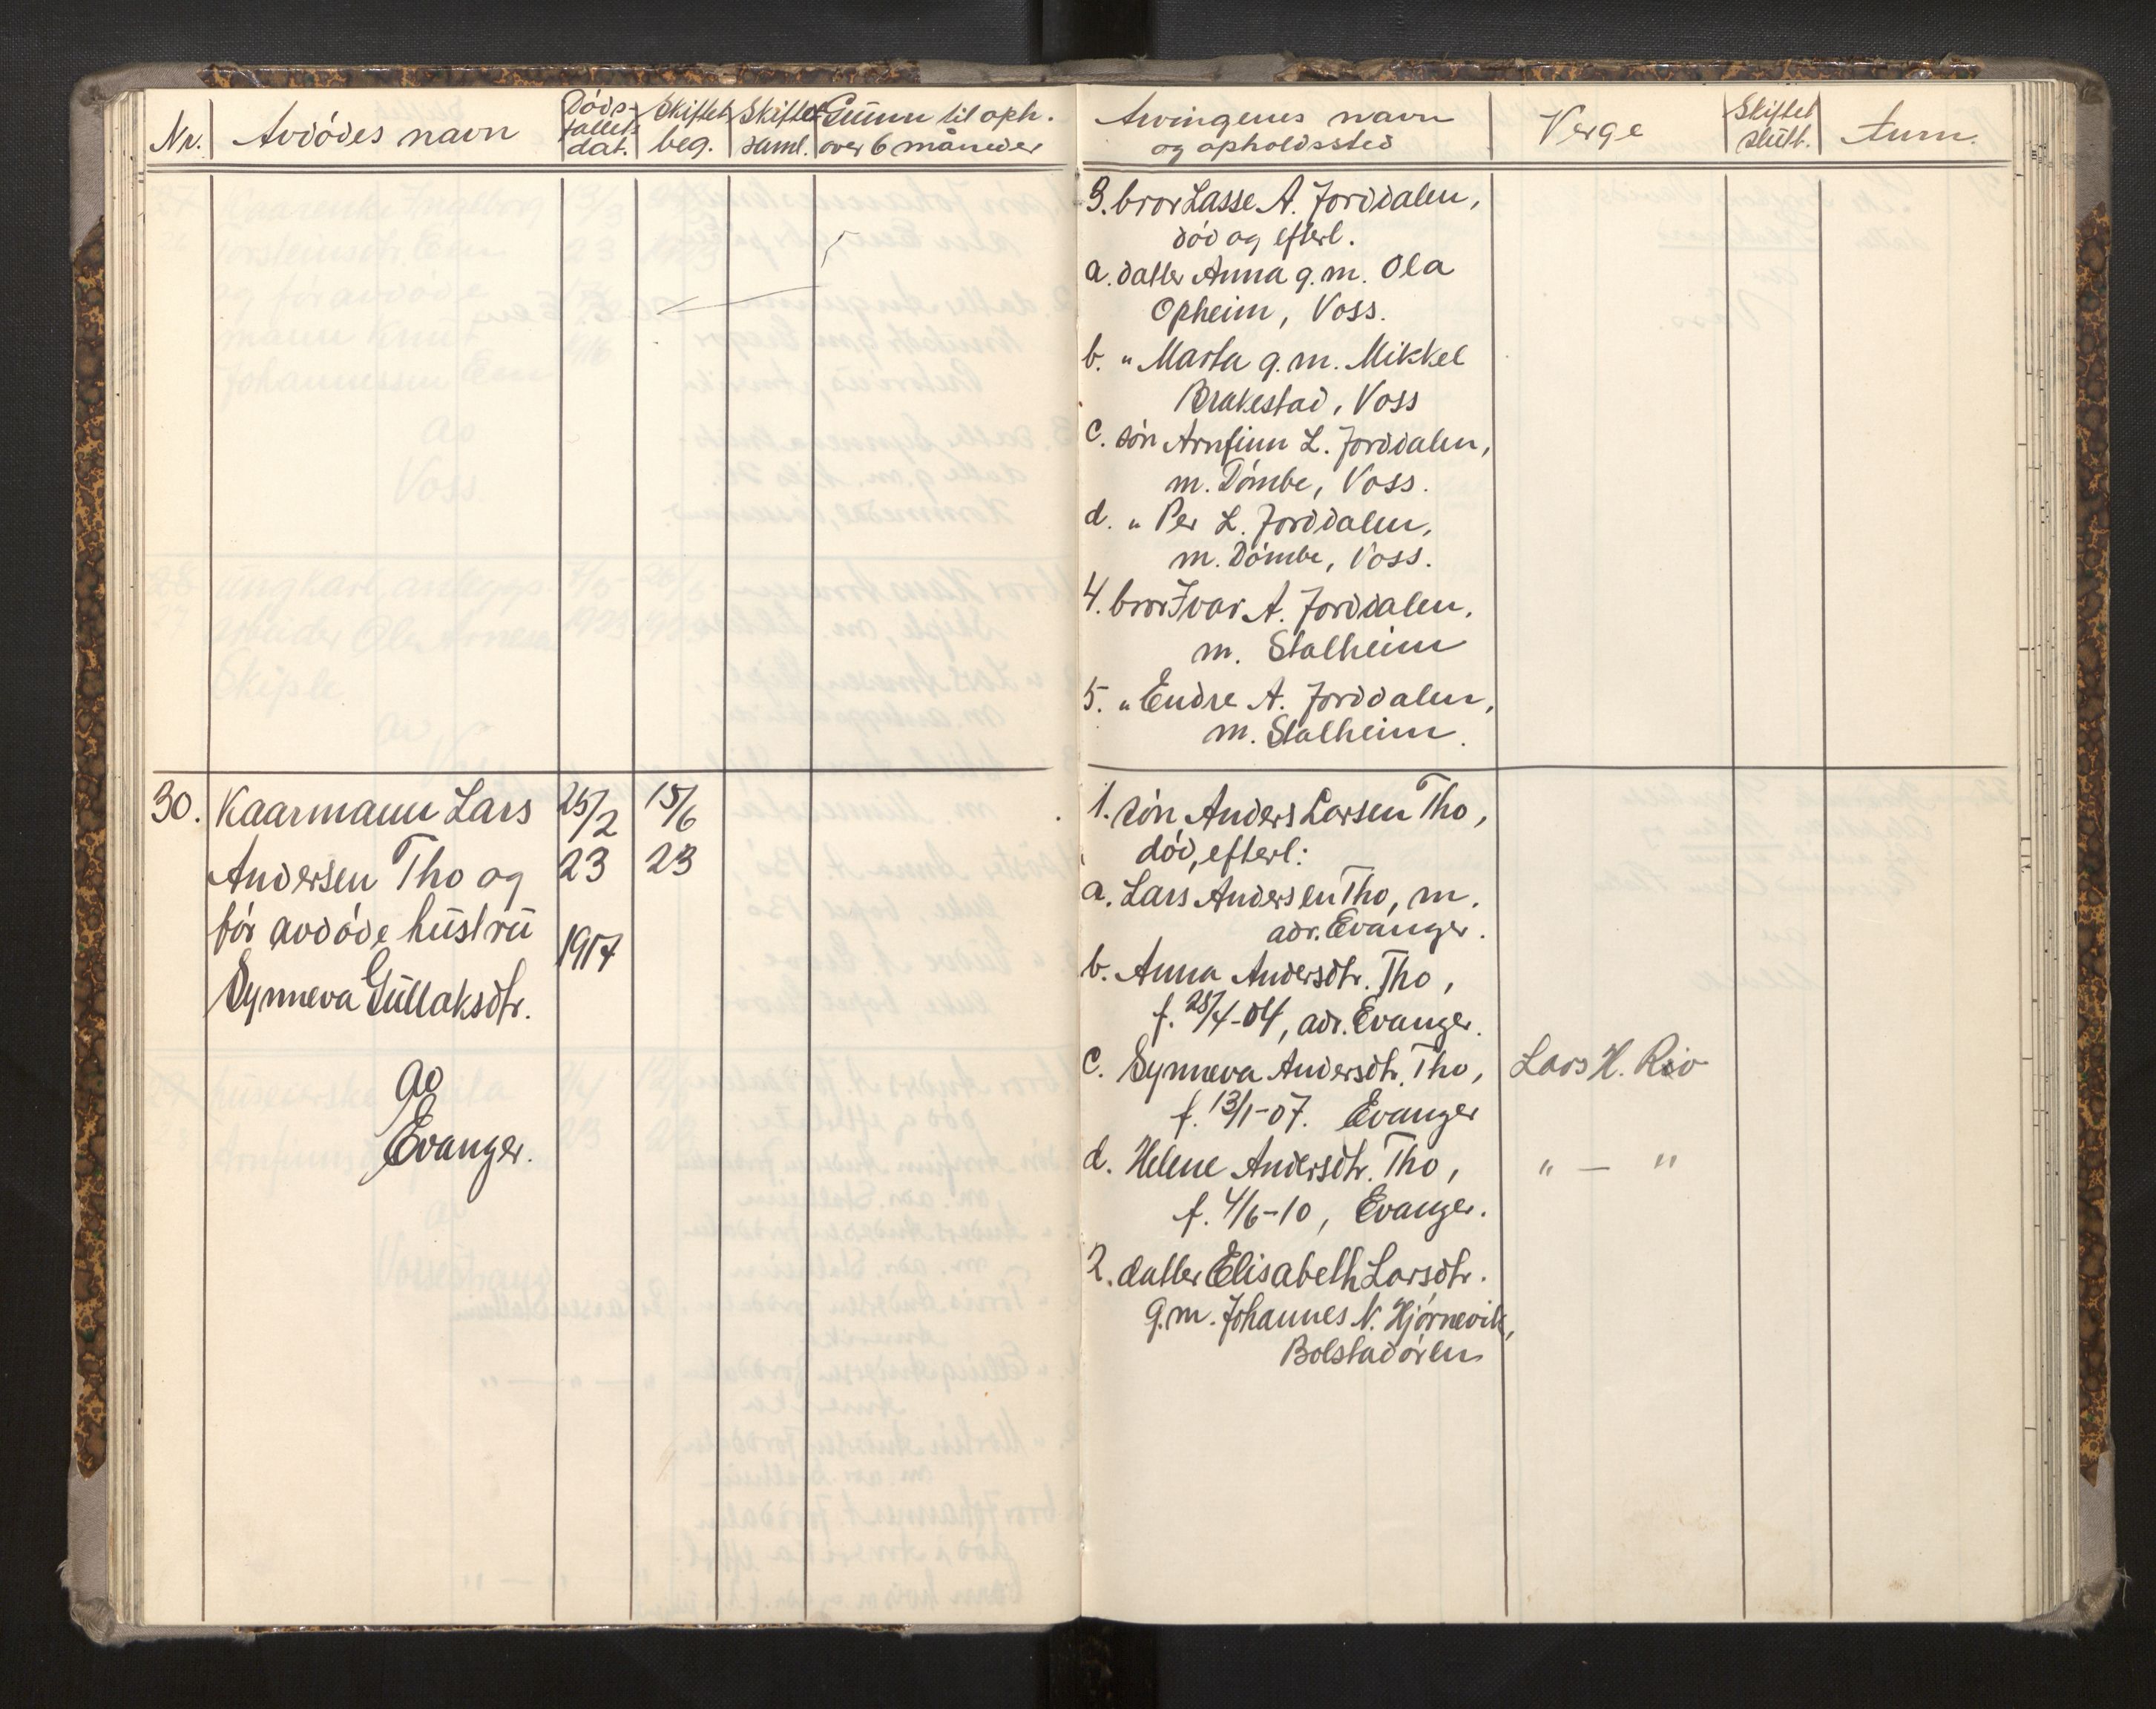 Nr.
Avdødes navn
Døds-
fallets
dat.
Skiftet
beg.
Skiftet
saml.
Grunn til oph.
over 6 måneder
30.
Kaarmann Lars
Andersen Tho og
før avdøde hustru
Synneva Gullaksdtr.
av
Evanger.
25/2
23
1917
15/6
23
Arvingenes navn
og opholdssted
Verge
Skiftet
slutt.
Anm.
3. bror Lasse A. Jorddalen,
død og efterl.
a. datter Anna g.m. Ola
Opheim, Voss.
b. " Marta g.m. Mikkel
Brakestad, Voss
c. søn Arnfinn L. Jorddalen,
m. Dømbe, Voss.
d. " Per L. Jorddalen,
m. Dømbe, Voss.
4. bror Ivar A. Jorddalen,
m. Stalheim
5. " Endre A. Jorddalen,
m. Stalheim.
1. søn Anders Larsen Tho,
død, efterl:
a. Lars Andersen Tho, m.
adr. Evanger.
b. Anna Andersdtr. Tho,
f. 28/4-04, adr. Evanger.
c. Synneva Andersdtr. Tho,
Lars H. Rio
f. 13/1-07. Evanger
d. Helene Andersdtr. Tho,
" — "
f. 4/6-10, Evanger.
2. datter Elisabeth Larsdtr.
g.m. Johannes N. Hjørnevik,
Bolstadøren